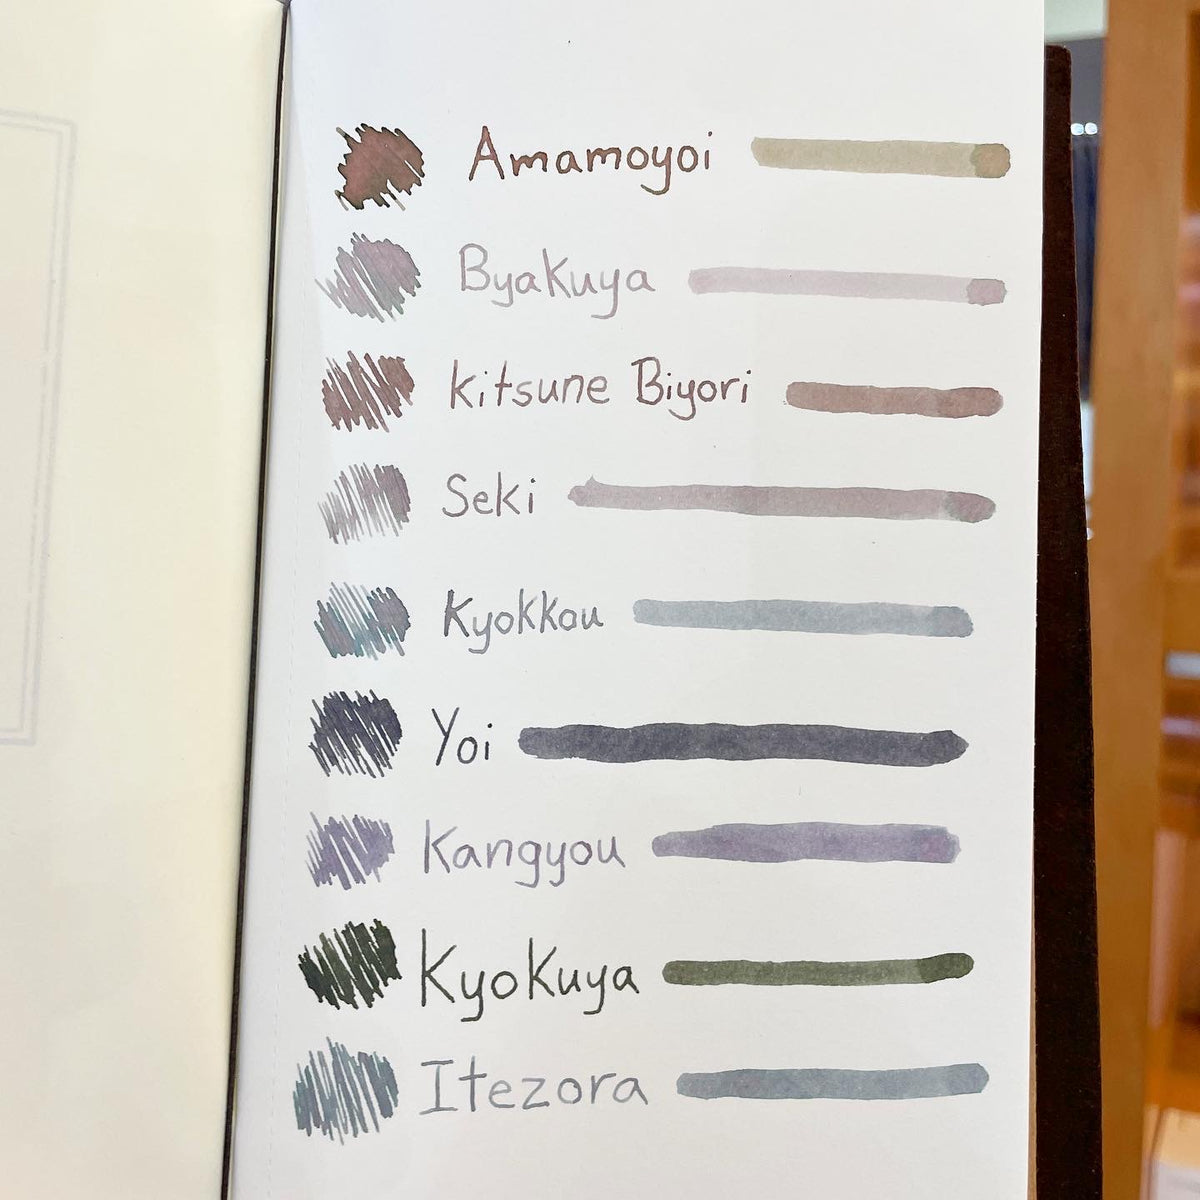 Amamoyoi
Byakuya
Kitsune Biyori
Seki
Kyokkou
Yoi
Kangyou
Kyokuya
Itezora